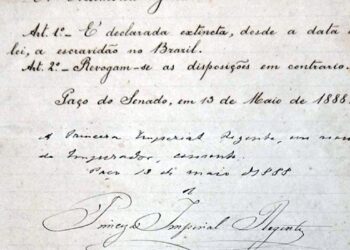 Art. 1º - É declarada extincta, desde a data
lei, a escravidão no Brazil.
Art. 2º - Revogam-se as disposições em contrario.
Paço do Senado, em 13 de Maio de 1888.
A Princeza Imperial Regente, em
do Imperador, consente.
Paço 13 de maio de 1888
Imperial Regente